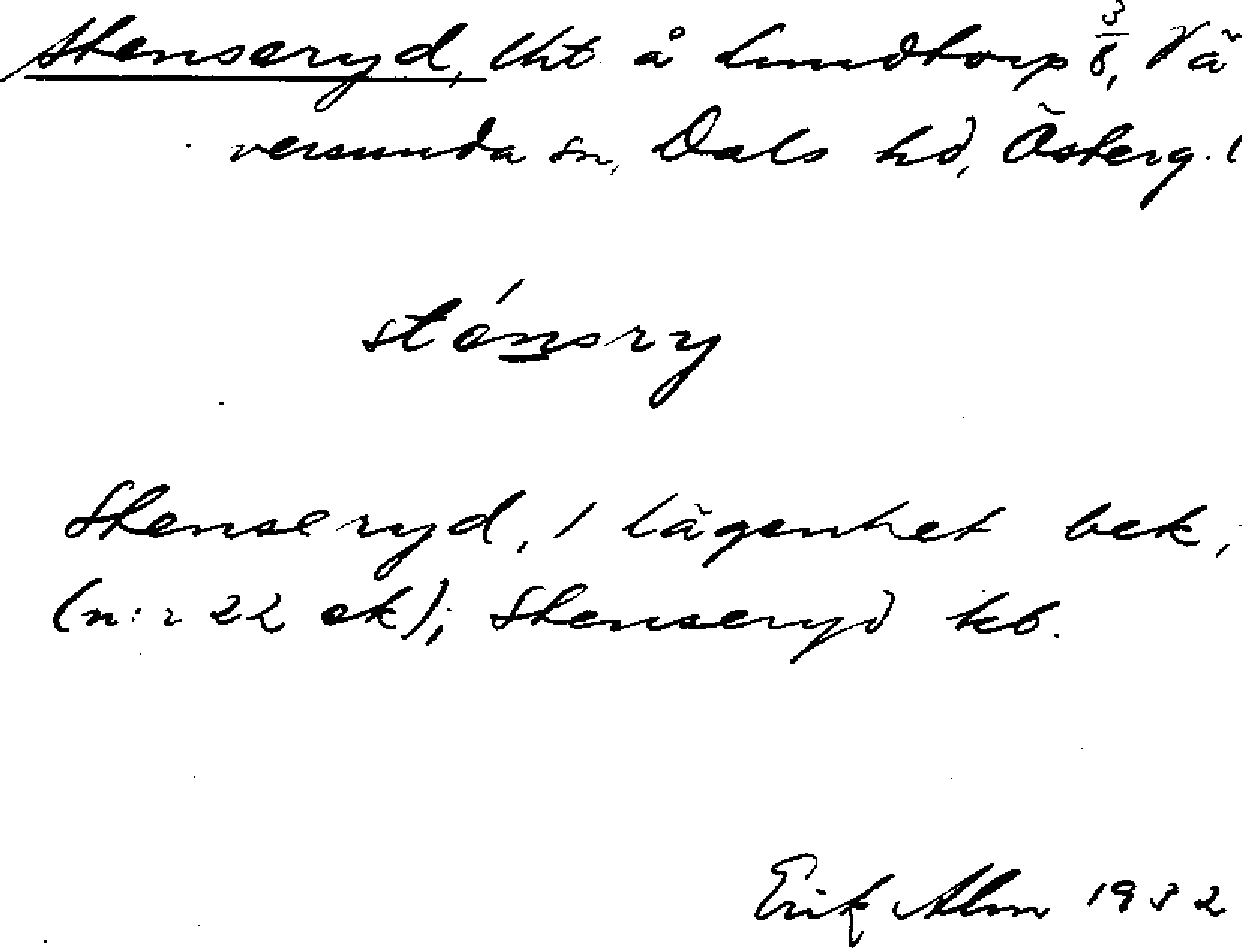 Stenseryd, lht å Lundtorp 3/8, Vä
versunda sn, Dals hd, Österg. l
sténsry
Stenseryd, 1 lägenhet bek,
(n:r 22 ek); Stenseryd kb.
Erik Alm 1932